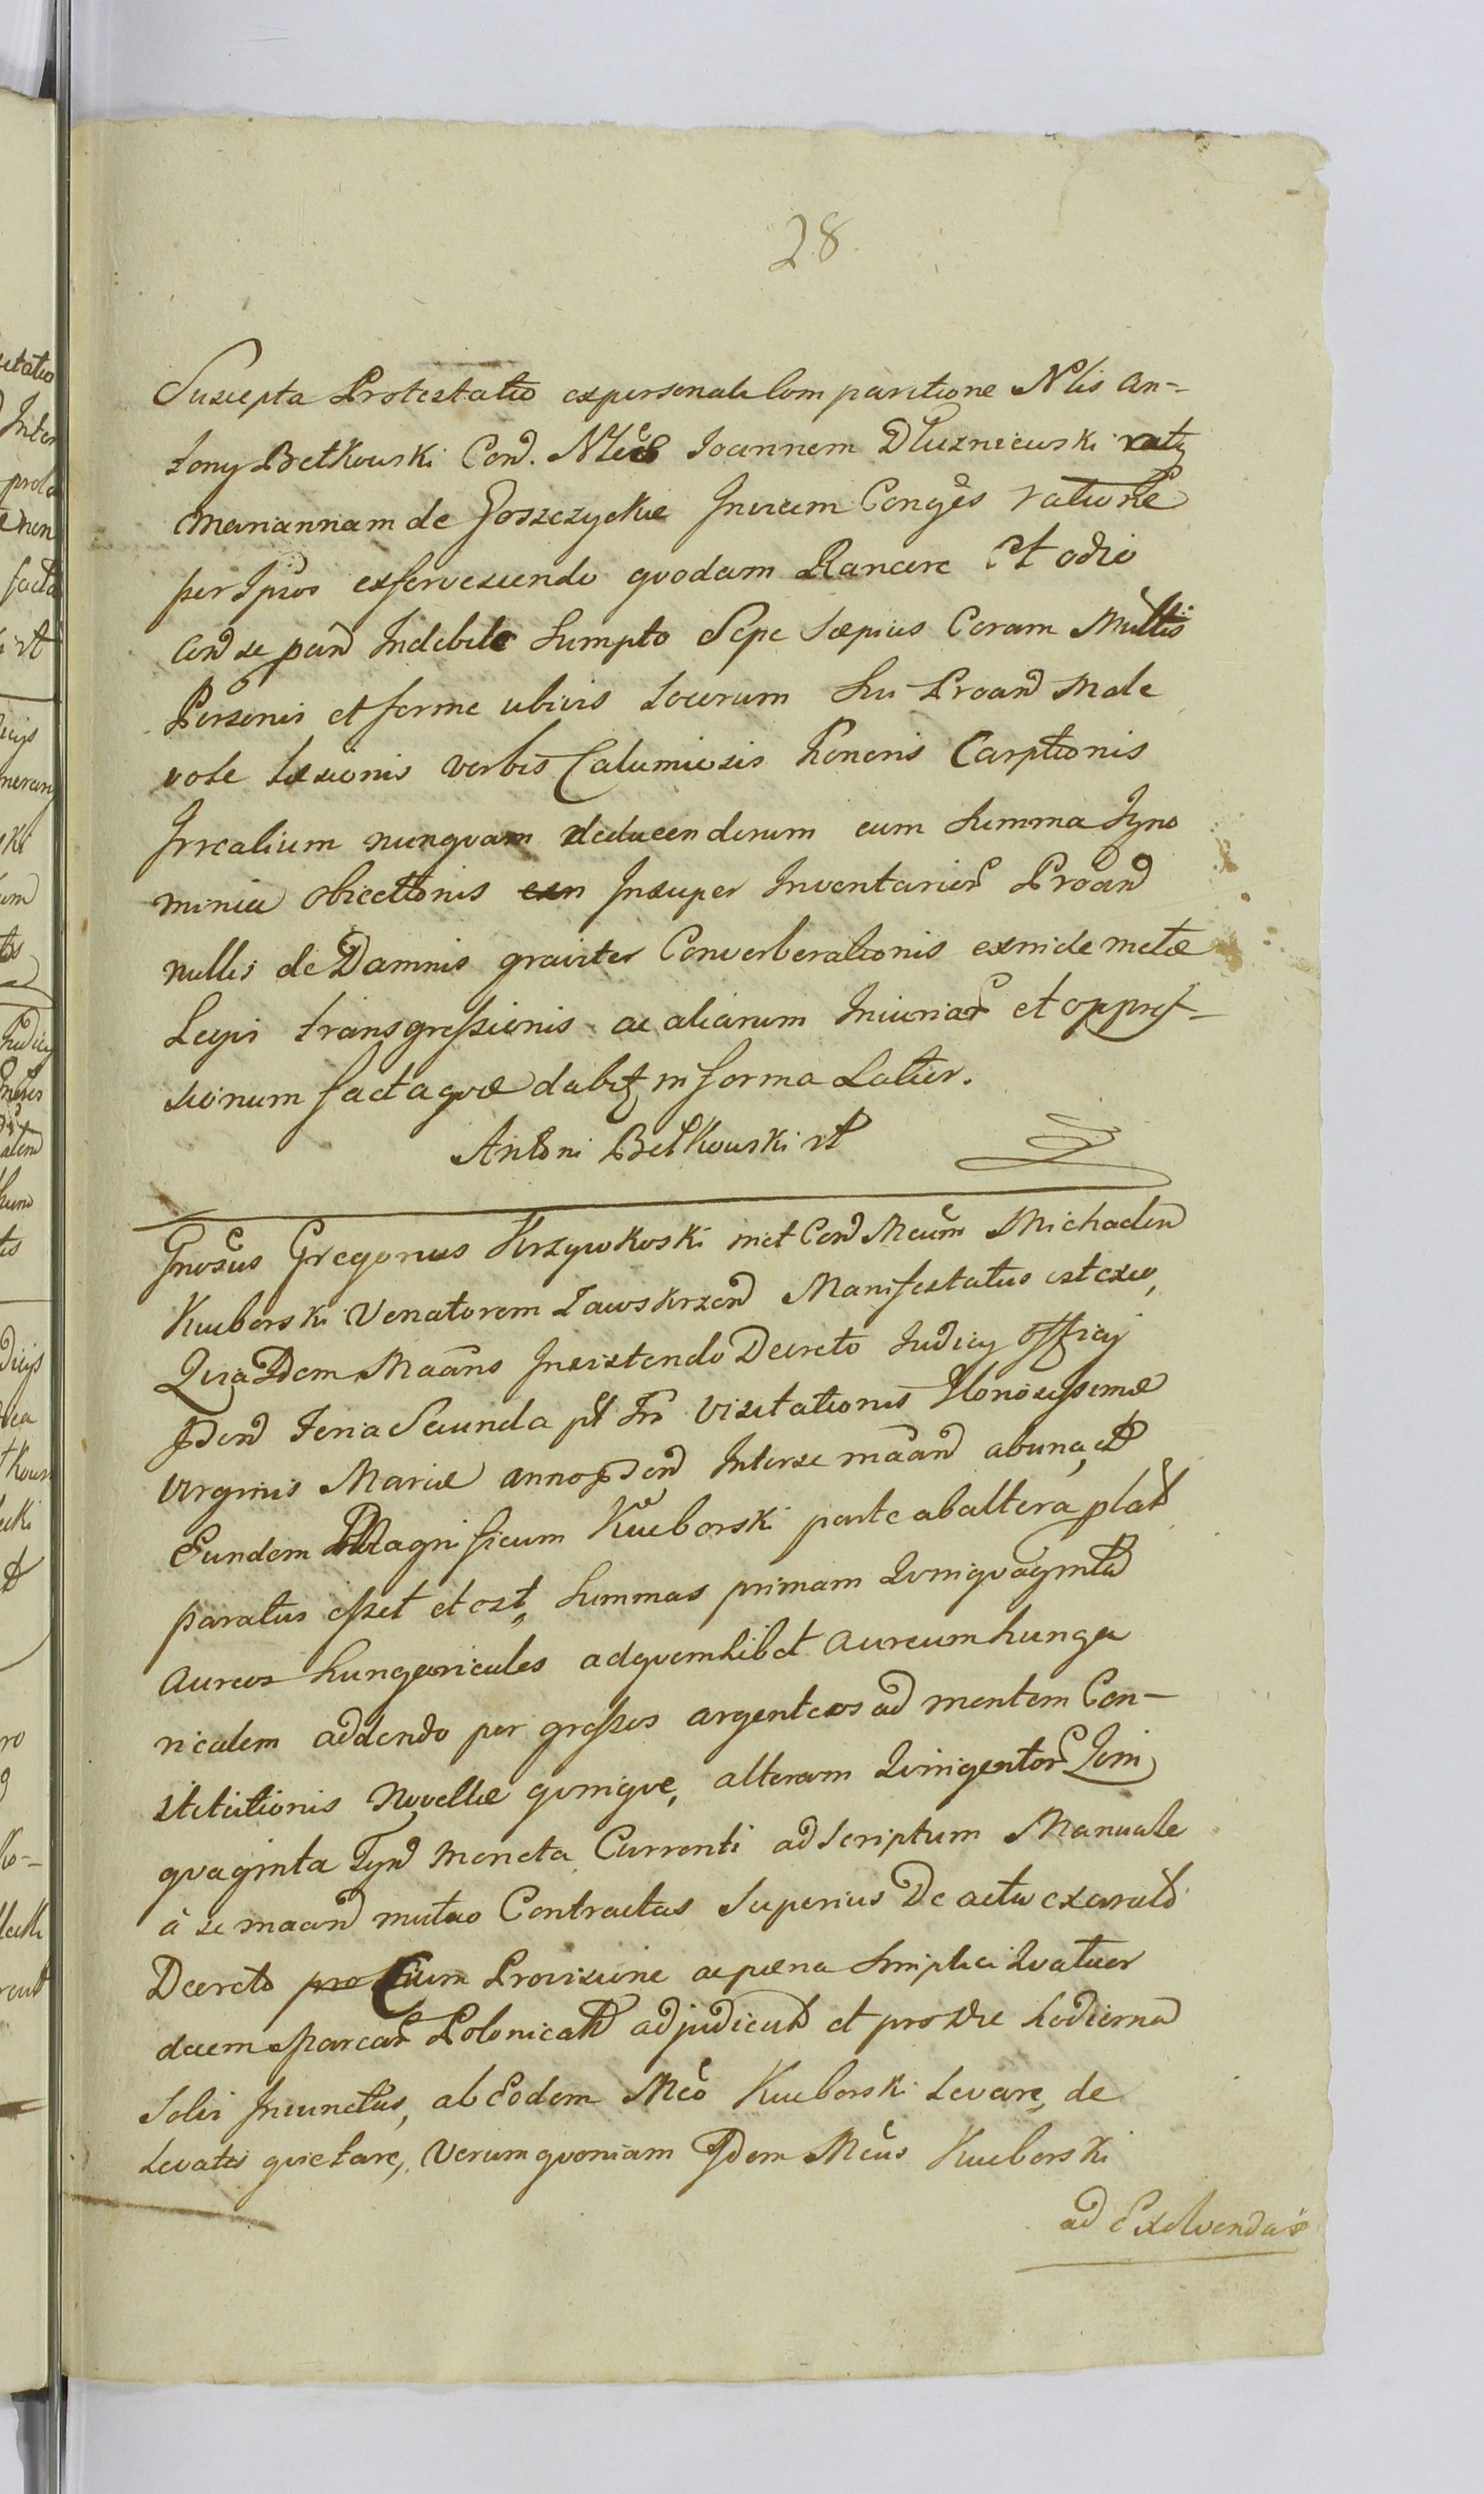 28
Suscepta Protestatio ex personali Comparitione Nlis An-
tony Betkowski Cond. Nlēs Joannem Dłuzniewski et
Mariannam de Goszczyckie Invicem Conges ratione
per Ipsos effervescendo quodam Rancore Et odio
Cond se pand Indebite Sumpto Sepe Sæpius Coram Multis
Personis et ferme ubivis Locorum Sui Proand Male
vole Læsionis verbis Calumiosis honoris Carptionis
Irrealium nunquam deducendorum cum Summa Igno
minia obiectionis Insuper Inventarior Proand
nullis de Damnis graviter Converberationis exnide metæ
Legis transgressionis ac aliarum Iniuriar et oppres-
sionum facta quæ dabit in forma Latior.
Antoni Betkowski
Gnosus Gregorius Krzywkoski met Cond Mcum Michaelem
Kuuborski Venatorem Zawskrzend Manifestatus est exeo,
Quia Idem Maans Insistendo Decreto Judicy Officy
Feria Secunda pt Fm Visitationis Glorioissimæ
Virginis Mariæ anno Interse maand ab una, et
Eundem Magnificum Kuuborski parte ab altera
paratus esset et est, Summas primam Quinquaginta
aureos hungaricales ad quemlibet aureum hunga
ricalem addendo per grossos argenteos ad mentem Con-
stitutionis Novellæ quinque, alteram Quingentor Quin
quaginta Tynd Moneta Currenti ad Scriptum Manuale
à se maand mutuo Contractas Superius De actu exarato
Decreto pro Cum Provisione ac pæna Simplici Quatuor
decem Marcar Polonicaln adjudicat et pro Die hodierna
Solvi Iniunctas, ab Eodem Mco Kuuborski Levare, de
Levatis quietare, Verum quoniam Idem Mcus Kuuborski
ad Exolvendas